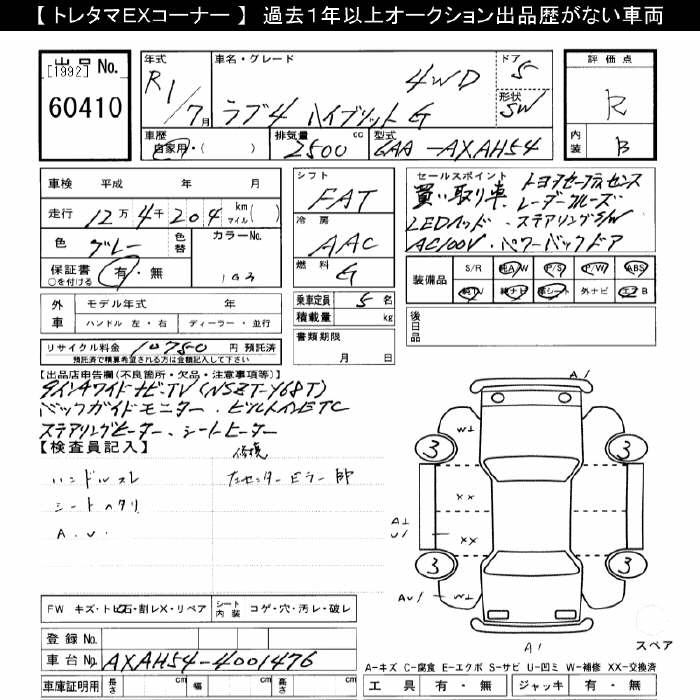 【 トレタマEXコーナー 】 過去1年以上オークション出品歴がない車両
出品 No.
[1992]
60410
年式
R1/7月
車名・グレード
4WD
ラブ4 ハイブリット G
ドア
5
形状
SW
評価点
R
内装
B
車歴
自家用・( )
排気量 cc
2500
型式
6AA-AXAH54
車検 平成 年 月
走行 12万4千204 km マイル( )
色 グレー 色替
カラーNo.
1G3
保証書 有・無
○を付ける
外車
モデル年式 年
ハンドル 左・右 ディーラー・並行
リサイクル料金 10750 円 預託済
預託済で精算希望される方は金額記入して下さい
シフト
FAT
冷房
AAC
燃料
G
乗車定員 5 名
積載量 kg
書類期限
月 日
セールスポイント トヨタセーフティセンス
買い取り車・レーダークルーズ
LEDヘッド・ステアリングS/W
AC100V・パワーバックドア
装備品
S/R 純A/W P/S P/W ABS
純TV 純ナビ 革シート 外ナビ エアB
後日品
【出品店申告欄(不良箇所・欠品・注意事項等)】
9インチワイドナビ・TV(NSZT-Y68T)
バックガイドモニター・ビルトインETC
ステアリングヒーター、シートヒーター
【検査員記入】
修復
ハンドルスレ
左センターピラー部
シートヘタリ
A.U.
FW キズ・トビ石・割レX・リペア
シート内装 コゲ・穴・汚レ・破レ
登録No.
車台No. AXAH54-4001476
車庫証明用 長さ cm 幅 cm 高さ cm
A1
3
W1
3
XX
A1
U1
XX
3
3
AU1
W1
A1
スペア
A-キズ C-腐食 E-エクボ S-サビ U-凹ミ W-補修 XX-交換済
工具 有・無 ジャッキ 有・無